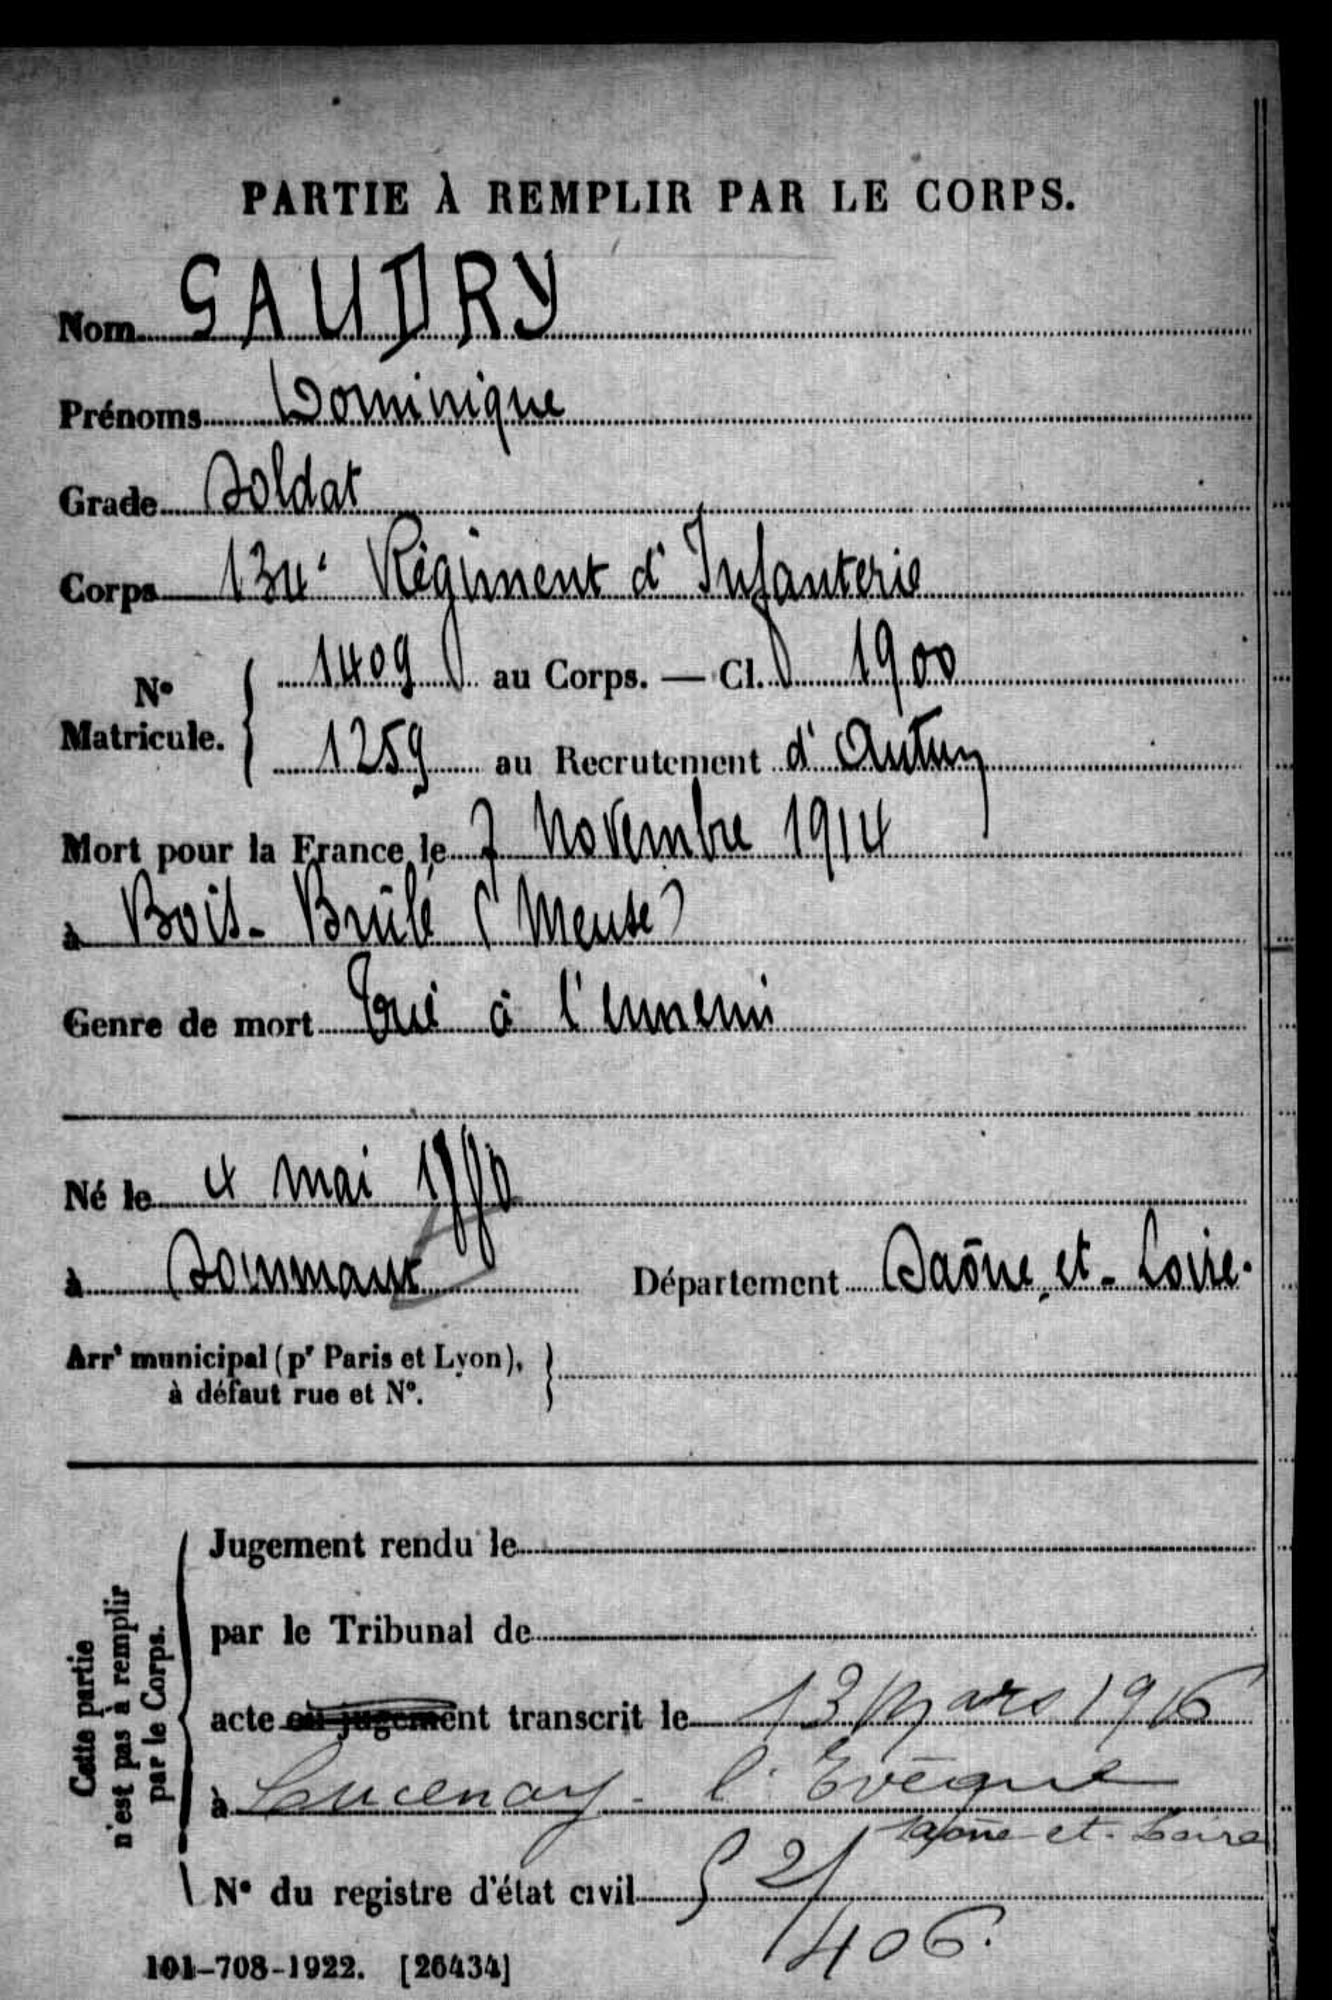 PARTIE À REMPLIR PAR LE CORPS.
Nom GAUDRY
Prénoms Dominique
Grade Soldat
Corps 134e Régiment d'Infanterie
N° Matricule. 1409 au Corps. — Cl. 1900
1259 au Recrutement d'Autun
Mort pour la France le 7 Novembre 1914
à Bois-Brûlé (Meuse)
Genre de mort Tué à l'ennemi
Né le 4 mai 1880
à Sommant Département Saône-et-Loire.
Arrt municipal (pr Paris et Lyon),
à défaut rue et N°.
Cette partie
n'est pas à remplir
par le Corps.
Jugement rendu le
par le Tribunal de
acte ou jugement transcrit le 13 Mars 1916
à Lucenay-l'Evêque
Saône-et-Loire
N° du registre d'état civil
406.
101-708-1922. [26434]